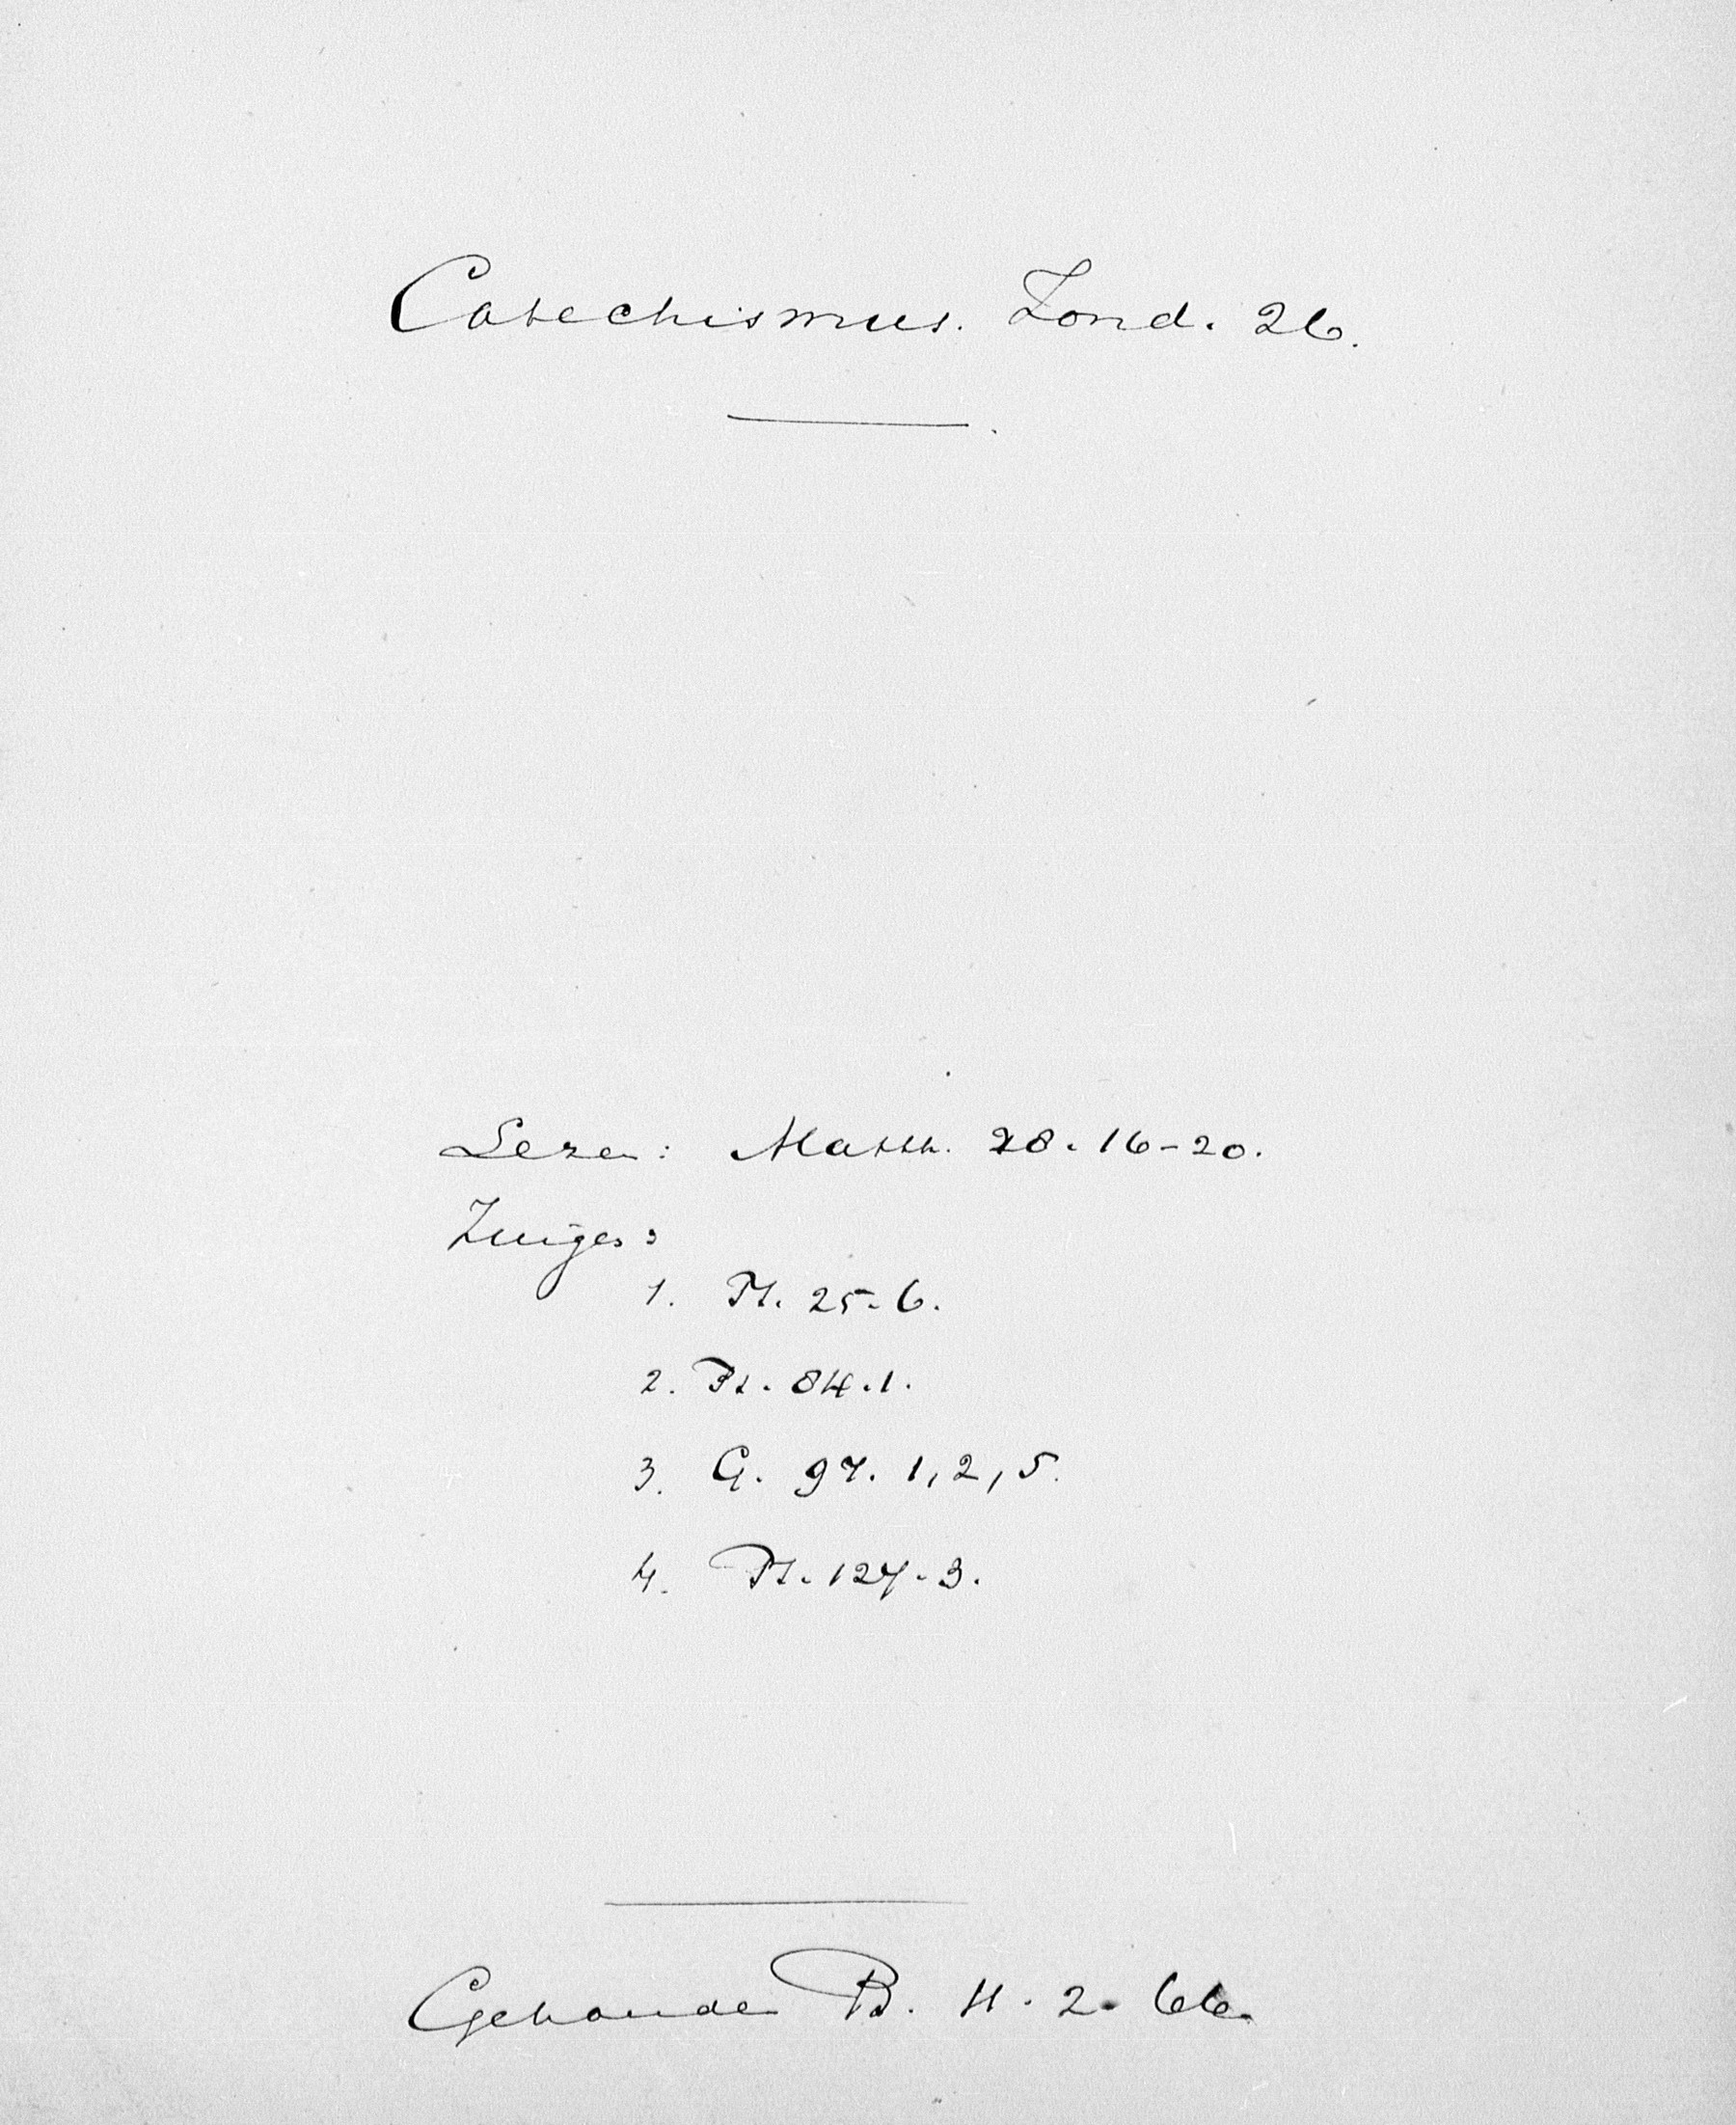 Catechismus. Zond. 26.
Lezen: Matth. 28. 16-20.
Zingen:
1. Ps. 25. 6.
2. Ps. 84. 1.
3. G. 97. 1, 2, 5.
4. Ps. 127. 3.
Gehouden B. 4. 2. 66.